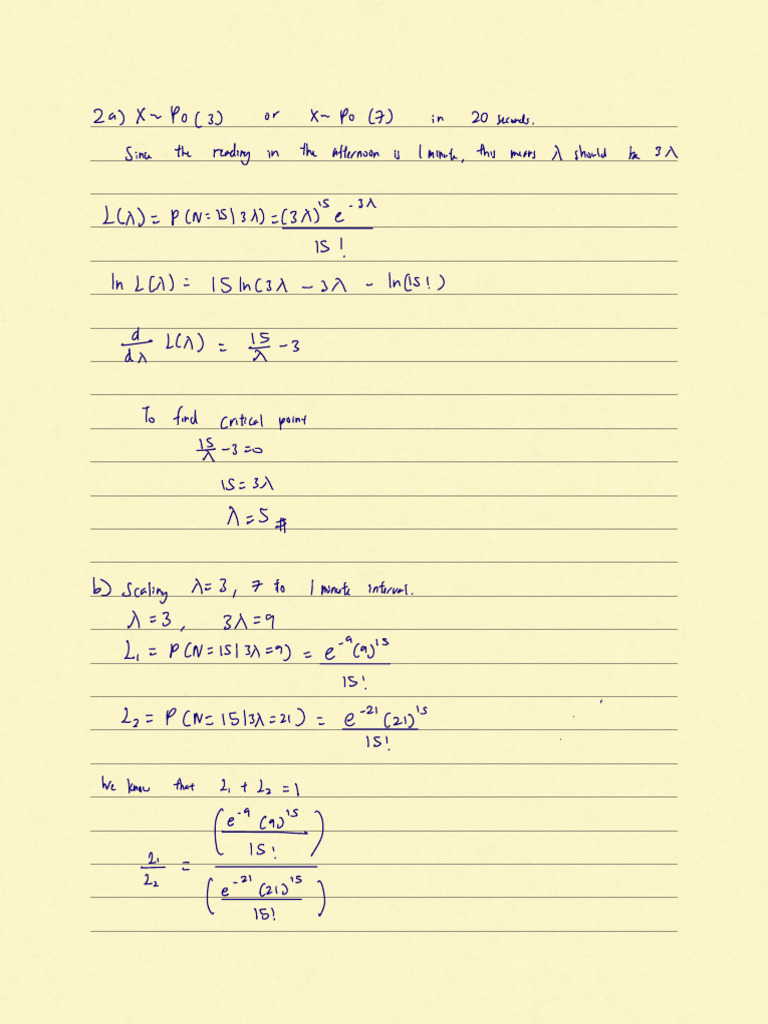 2a) X ~ Po(3) or X ~ Po (7) in 20 seconds.
Since the reading in the afternoon is 1 minute, this means λ should be 3λ
L(λ) = P(N=15|3λ) = (3λ)^15 e^-3λ / 15!
ln L(λ) = 15 ln(3λ - 3λ - ln(15!)
d/dλ L(λ) = 15/λ - 3
To find critical point
15/λ - 3 = 0
15 = 3λ
λ = 5 #
b) Scaling λ = 3, 7 to 1 minute interval.
λ = 3, 3λ = 9
L₁ = P(N=15|3λ=9) = e^-9 (9)^15 / 15!
L₂ = P(N=15|3λ=21) = e^-21 (21)^15 / 15!
We know that L₁ + L₂ = 1
L₁/L₂ = (e^-9 (9)^15 / 15!) / (e^-21 (21)^15 / 15!)